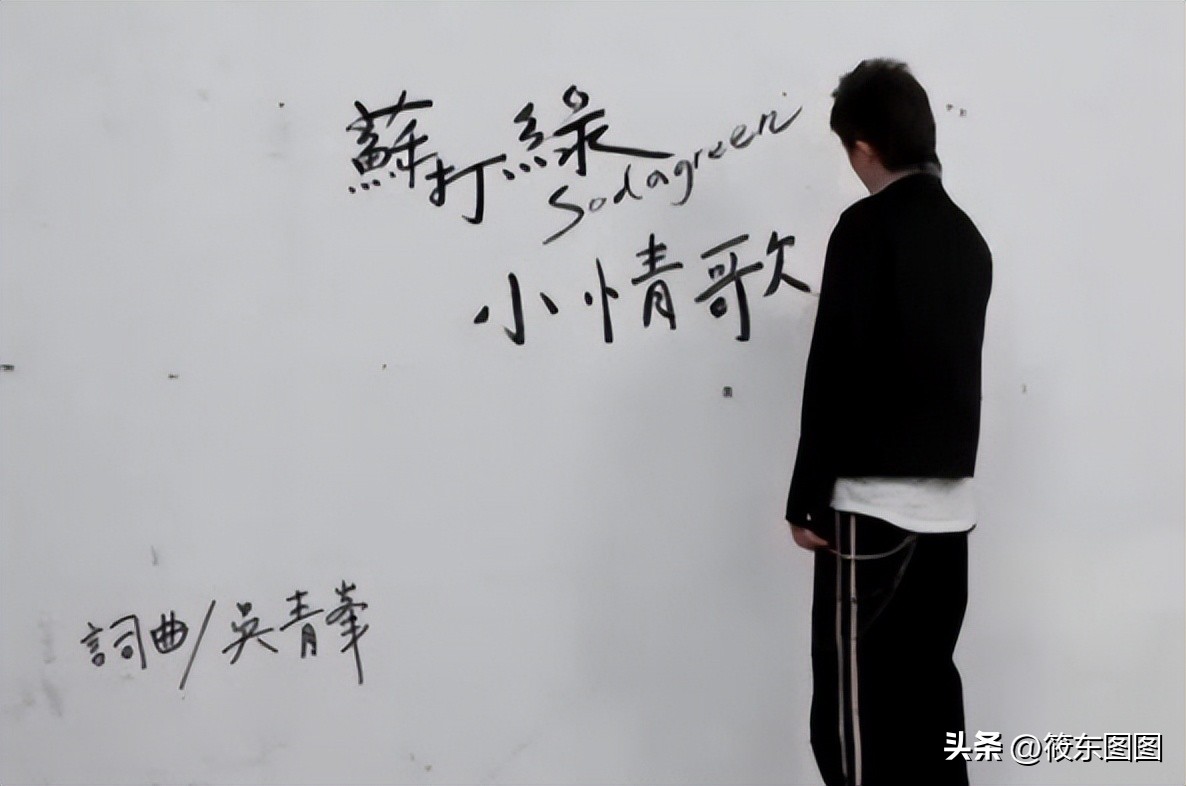 蘇打綠
Sodagreen
小情歌
詞曲/吳青峯
头条 @筱东图图